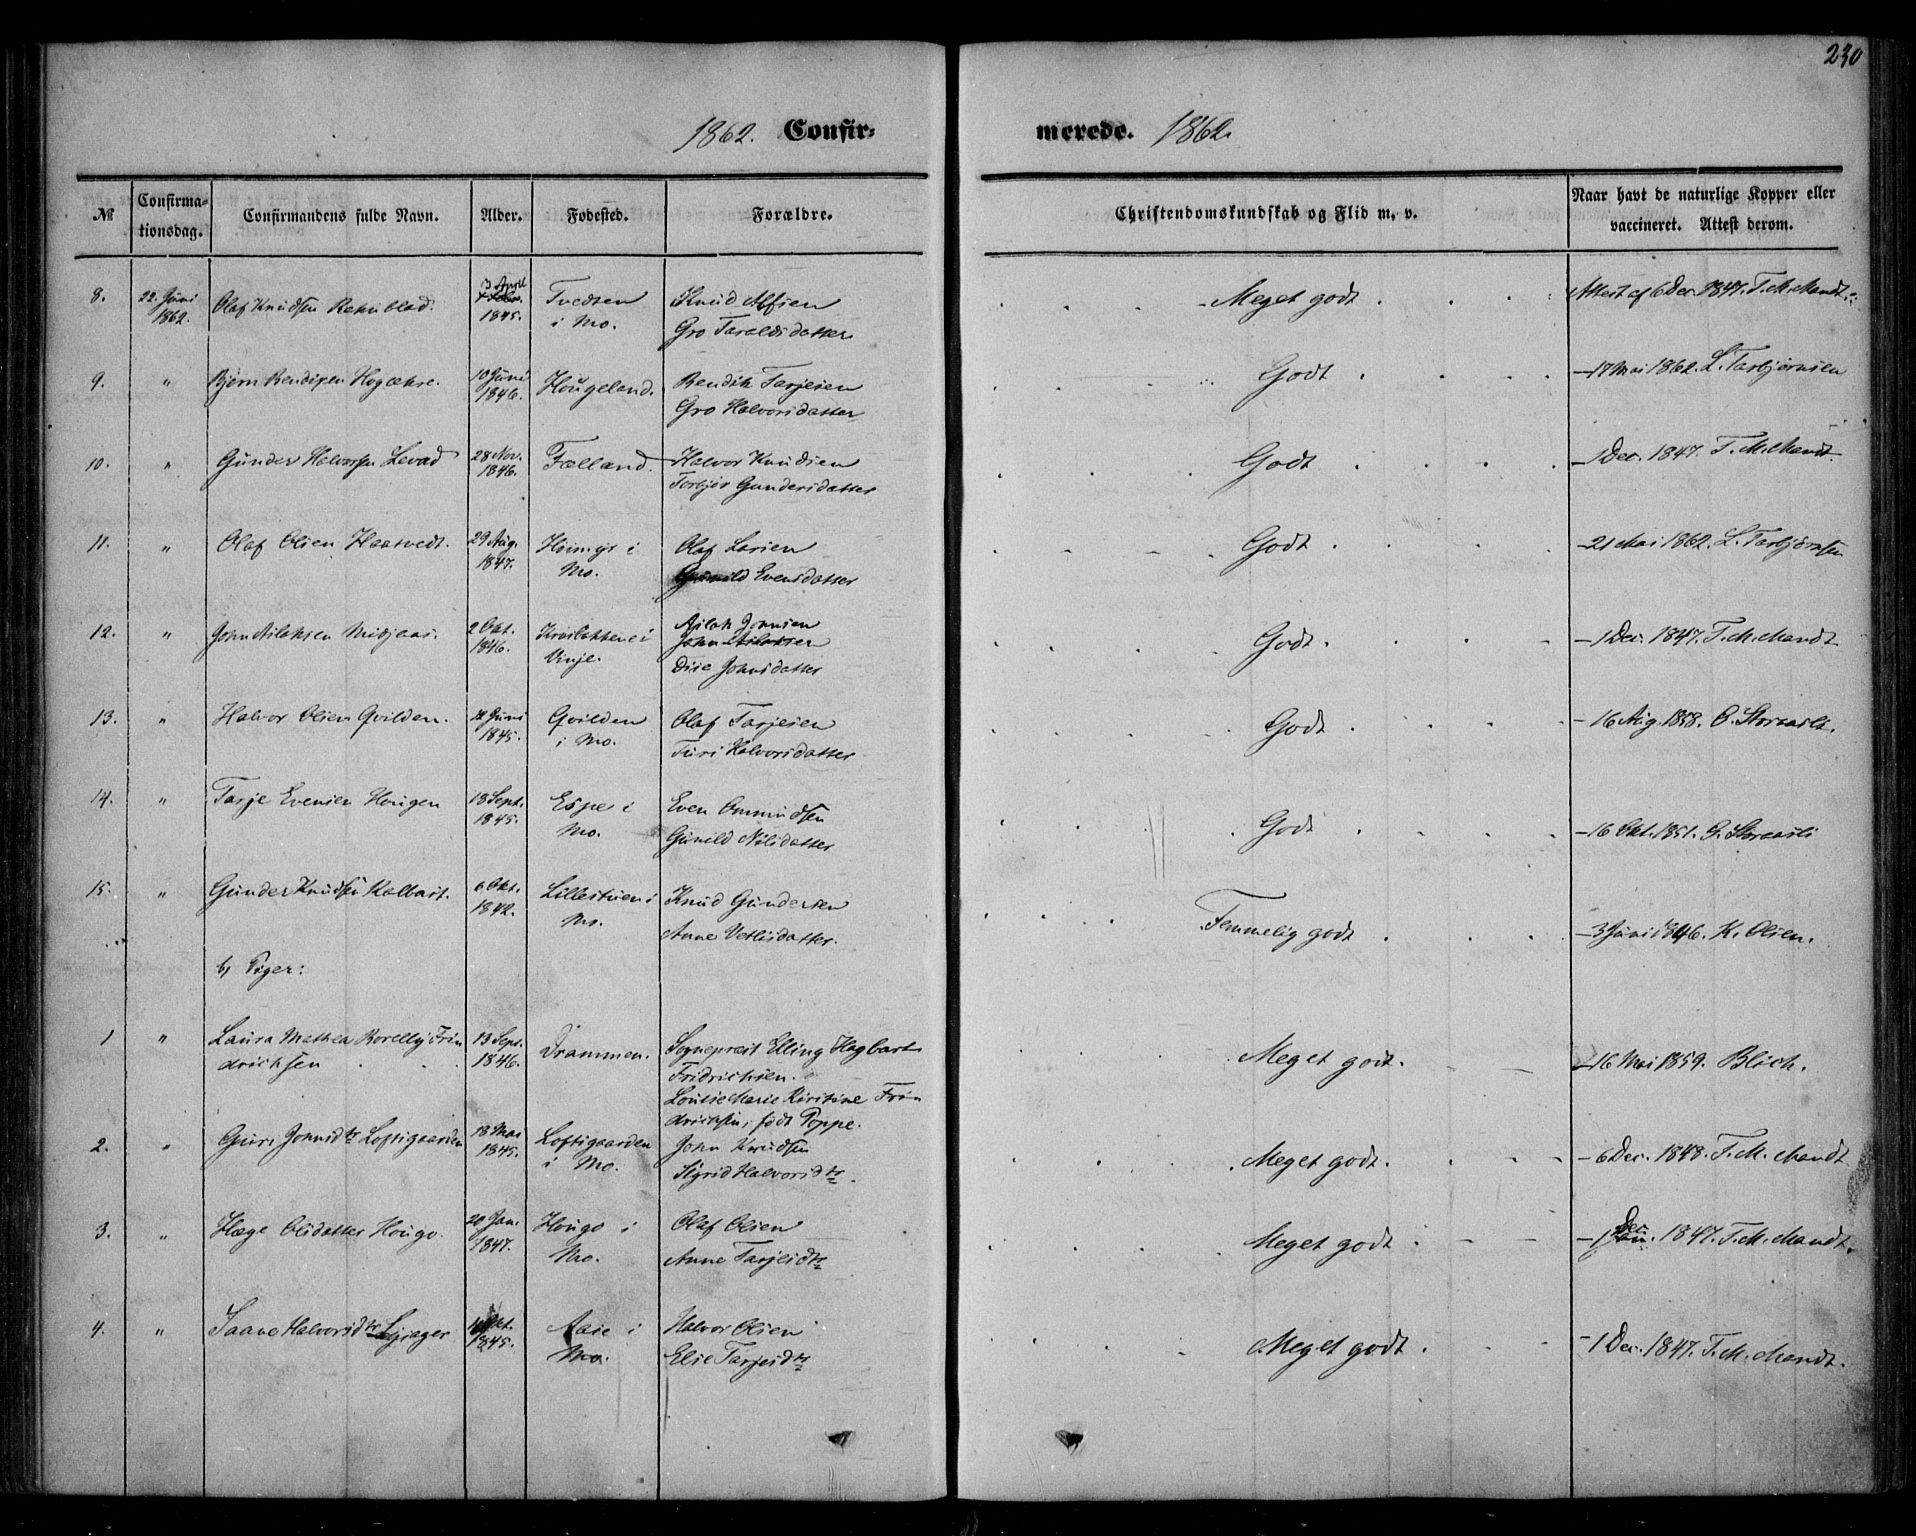 230
1862. Confir-
merede. 1862.
№ Confirma-tionsdag. Confirmandens fulde Navn. Alder. Fødested. Forældre. Christendomskundskab og Flid m. v. Naar havt de naturlige Kopper eller vaccineret. Attest derom.
8. 22. Juni 1862. Olaf Knudsen 3 April 1845. Tvedten i Mo. Knud Alfsen
Gro Taraldsdatter Meget godt Attest af 6 Dec. 1847. T. M. Mandt.
9. " Bjørn Bendixen 10 Juni 1846. Hougeland. Bendik Tarjesen
Gro Halvorsdatter Godt — 17 Mai 1862. L. Tarbjørnsen
10. " Gunder Halvorsen Levad 28 Nov. 1846. Fælland. Halvor Knudsen
Torbjør Gundersdatter Godt — 1 Dec. 1847. T. M. Mandt.
11. " Olaf Olsen Haatvedt. 29 Aug. 1847. i Mo. Olaf Larsen
Gunild Evensdatter Godt — 21 Mai 1862. L. Tarbjørnsen
12. " John Aslaksen Midjaas. 2 Okt. 1846. i Vinje. Aslak Jonsen
John Aslaksen
Dise Johnsdatter Godt. — 1 Dec. 1847. T. M. Mandt
13. " Halvor Olsen Qvilden. Juni 1845. Qvilden i Mo. Olaf Tarjesen
Turi Halvorsdatter Godt — 16 Aug. 1858. O. Storaasli.
14. " Tarje Evensen Hougen 18 Sept. 1845. Espe i Mo. Even Ommundsen
Gunild Nilsdatter Godt — 16 Okt. 1851. O. Storaasli
15. " Gunder Knudsen 6 Okt. 1842. Lillestuen i Mo. Knud Gundersen
Anne Vetlisdatter. Temmelig godt — 3 Juni 1846. K. Olsen.
b) Piger:
1 " Laura Mathea Borelly Fridrichsen 13 Sept. 1846. Drammen. Sognepræst Elling Hagbart
Fridrichsen.
Louise Marie Kirstine Fridrichsen, født Poppe. Meget godt. — 16 Mai 1859. Blich.
2. " Guri Johnsdtr Loftsgaarden 18 Mai 1845. Loftsgaarden i Mo. John Knudsen
Sigrid Halvorsdtr. Meget godt. — 6 Dec. 1848. T. M. Mandt
3. " Hæge Olsdatter Hougo. 20 Jan. 1847. Hougo i Mo. Olaf Olsen
Anne Tarjeisdtr Meget godt. — 1 Dec. 1847. T. M. Mandt.
4. " Saave Halvorsdtr Okt. 1845. Aase i Mo. Halvor Olsen
Else Tarjesdtr Meget godt. — 1 Dec. 1847. T. M. Mandt.